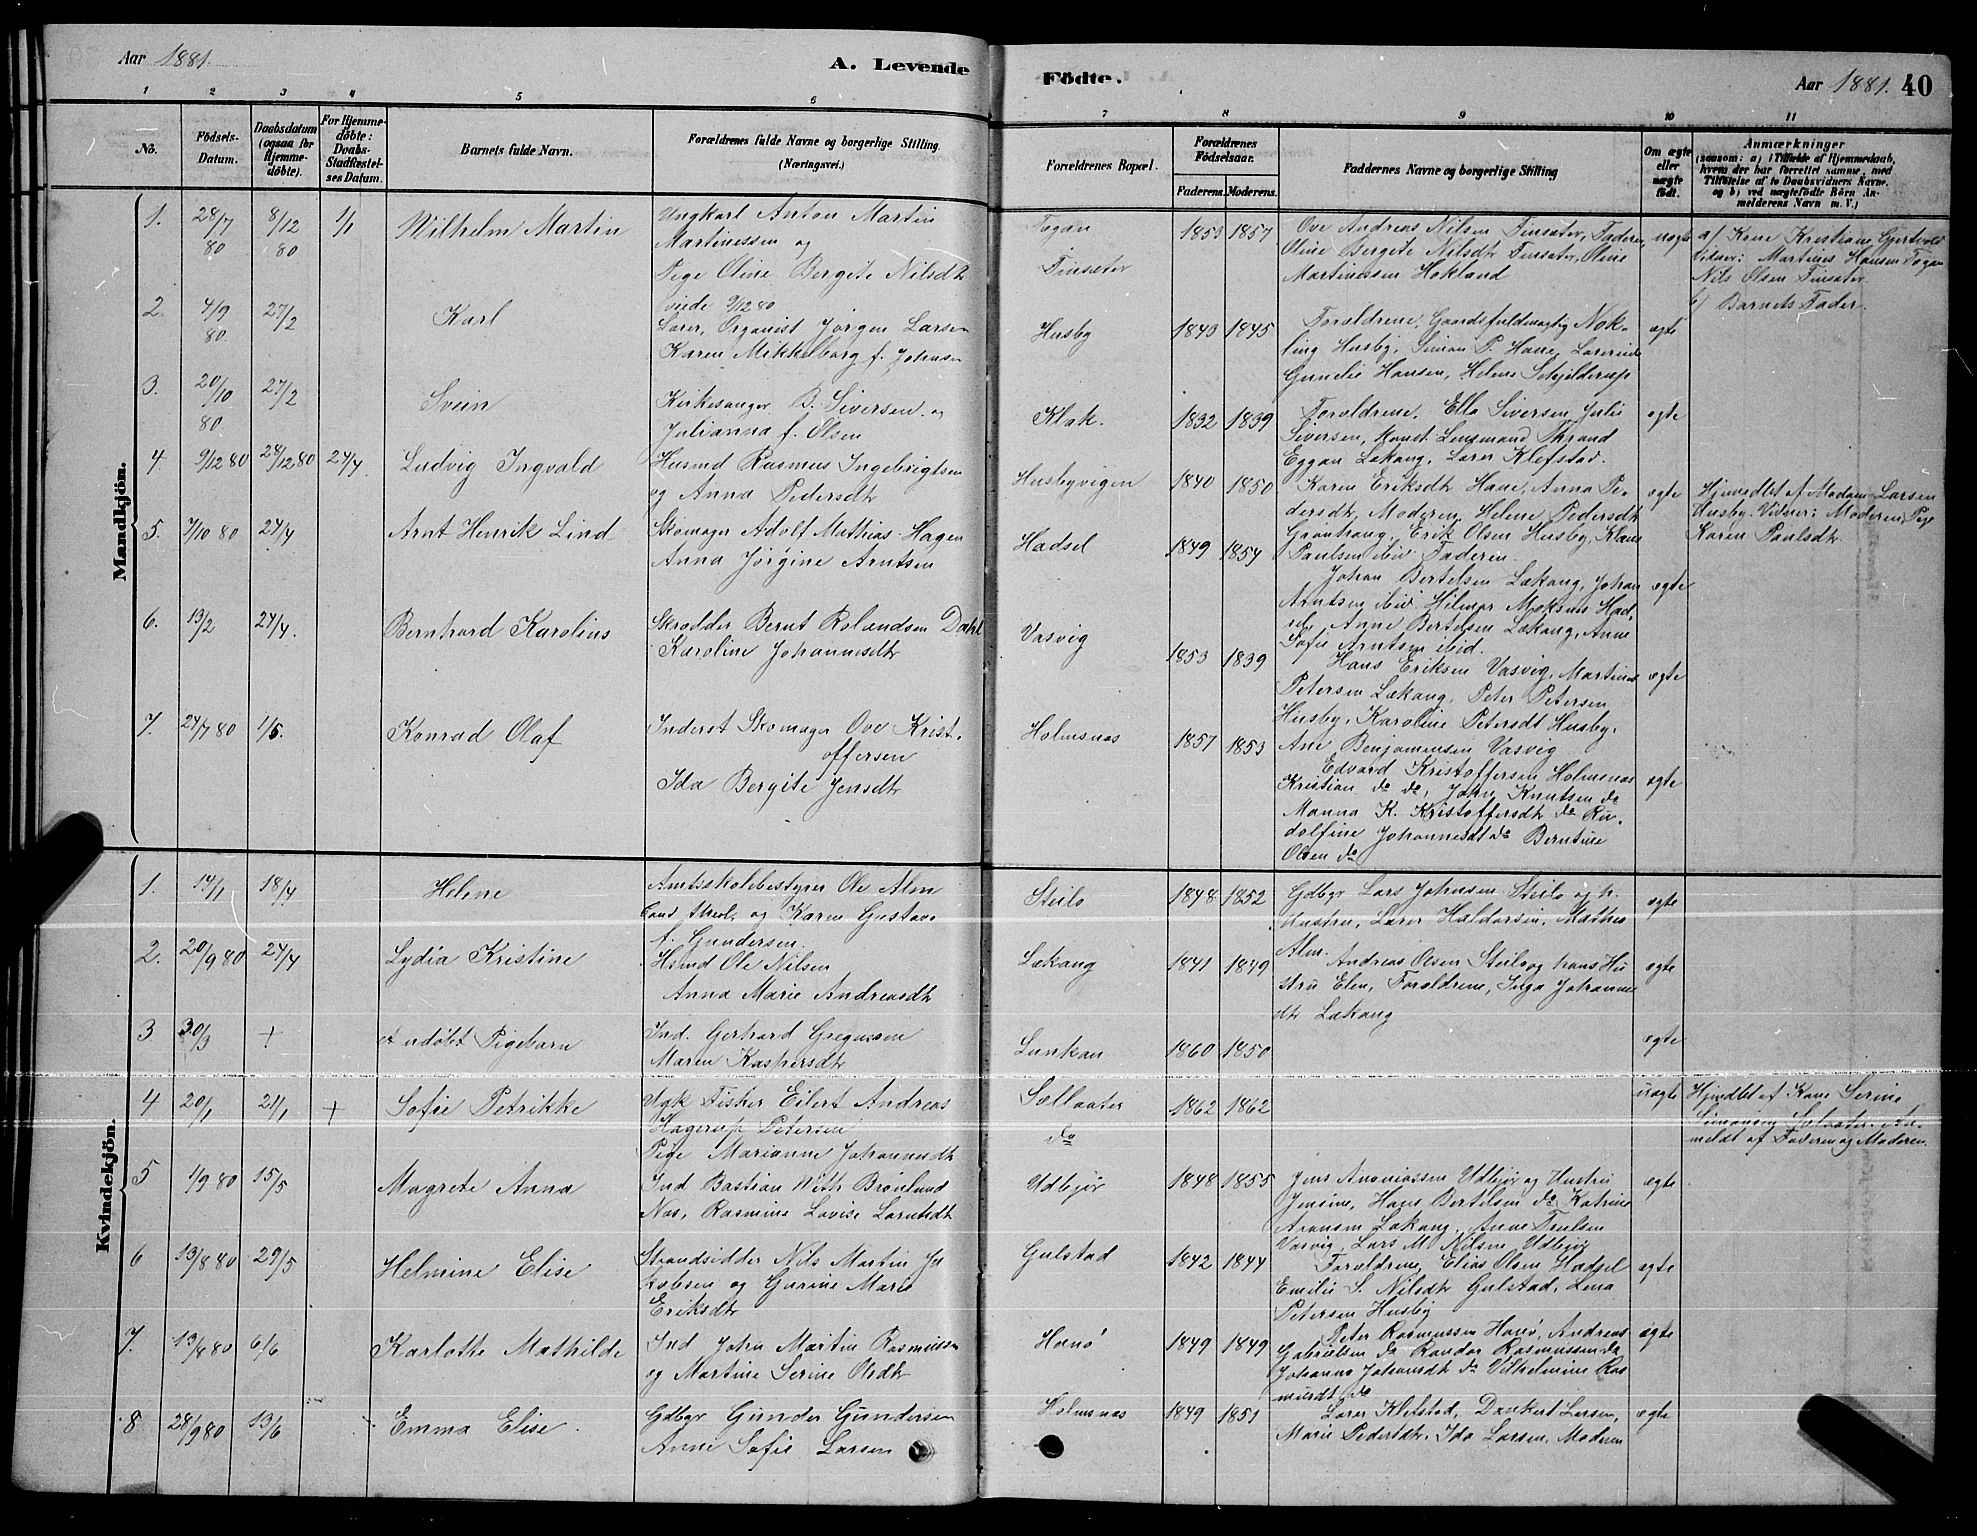 Aar 1881.
A. Levende
Födte.
Aar 1881. 40
1 2 3 4 5 6 7 8 9 10 11
No.
Födsels-Datum.
Daabsdatum (ogsaa for Hjemme-döbte).
For Hjemme-döbte: Daabs-Stadfæstel-ses Datum.
Barnets fulde Navn.
Forældrenes fulde Navne og borgerlige Stilling.
(Næringsvei.)
Forældrenes Bopæl.
Forældrenes Födselsaar.
Faderens. Moderens.
Faddernes Navne og borgerlige Stilling
Om ægte eller uægte födt.
Anmærkninger
(saasom: a) i Tilfælde af Hjemmedaab,
hvem der har forrettet samme, med
Tilföielse af to Daabsvidners Navne.
og b) ved uægtefödte Börn An-
melderens Navn m. V.)
Mandkjön.
1. 28/7 80 8/12 80 1/1 Wilhelm Martin
Ungkarl Anton Martin
Martinessen og
Pige Oline Bergite Nilsdtr
viede 9/12 80
Togan
Finsæter
1853 1857
Ove Andreas Nilsen Finsæter, Faderen,
Oline Bergite Nilsdtr Finsæter, Oline
Martinessen Hokland
uægte
a/ Kone Kristiane Gjertvold
Vidner: Martines Hansen Togan
Nils Olsen Finsæter
b/ Barnets Fader.
2. 4/9 80. 27/2 Karl
Lærer, Organist Jörgen Larsen
Karen Mikkelborg f. Johnsen
Husby 1843 1845
Forældrene, Gaardsfuldmægtig Nok-
ling Husby, Simon P. Hane, Lærerinde
Gunelie Hansen, Helene Schjelderup
ægte
3. 20/10 80 27/2 Svein
Kirkesanger B. Siversen og
Julianna f. Olsen
Klak. 1832 1839
Forældrene, Ella Siversen, Julie
Siversen, Konst. Lensmand Thrand
Eggan Lekang, Lærer Klefstad.
ægte
4 9/12 80 28/12 80 24/4 Ludvig Ingvald
Husmd Rasmus Ingebrigtsen
og Anna Pedersdtr
Husbyvigen 1840 1850
Karen Eriksdtr Hane, Anna Pe-
dersdtr, Moderen, Helene Pedersdtr
Grönhaug, Erik Olsen Husby, Klaus
Paulsen ibid Faderen.
ægte
Hjemedbt af Madam Larsen
Husby. Vidner: Moderen, Pige
Karen Paulsdtr.
5. 7/10 80 24/4 Arnt Henrik Lind
Skomager Adolf Mathias Hagen
Anna Jörgine Arntsen
Hadsel 1849 1854
Johan Bertelsen Lekang, Johan
Arntsen ibid. Hilmar Maksnes Had-
sel, Anne Bertelsen Lekang, Anne
Sofie Arntsen ibid.
ægte
6. 13/2 24/4. Bernhard Karolius
Skrædder Bernt Rolandsen Dahl
Karoline Johannesdtr
Vasvig 1853 1839
Hans Eriksen Vasvig, Martines
Petersen Lekang, Peter Petersen
Husby, Karoline Petersdt Husby,
Ane Benjaminsen Vasvig
ægte
7. 24/7 80 1/5. Konrad Olaf
Inderst Skomager Ove Krist-
offersen
Ida Bergite Jensdtr
Holmsnæs 1857 1853
Edvard Kristoffersen Holmsnæs
Kristian do do, John Knutsen do
Manna K. Kristoffersdtr do Ru-
dolfine Johannesdt do Berntine
Olsen do
ægte
Kvindekjön.
1. 14/1 18/4 Helene
Amtsskolebestyrer Ole Alm
Cand. theol. og Karen Gustava
f. Gundersen.
Steilo 1848 1852
Gdbgr Lars Johnsen Steilo og h.
Hustru, Lærer Haldorsen, Mathea
Alm.
ægte
2. 20/9 80 24/4 Lydia Kristine
Hsmd Ole Nilsen
Anna Marie Andreasdtr
Lekang 1841 1849
Andreas Olsen Steilo og hans Hu
stru Elen, Forældrene, Inga Johannes
dtr Lekang
ægte
3 30/3 + et udöbt Pigebarn
Ind. Gerhard Gregusson
Maren Kaspersdtr
Lunkan 1860 1850 ægte
4 20/1 21/1 + Sofie Petrikke
Ugk Fisker Eilert Andreas
Hagerup Petersen
Pige Marianne Johannesdtr
Sellaater
do
1862 1862
uægte
Hjmdbt af Kone Serine
Simonsen Selaater. An-
meldt af Faderen og Moderen.
5 4/9 80 15/5 Magrete Anna
Ind Bastian With Brönlund
Næs, Rasmine Lovise Larntsdtr
Udbyör 1848 1855
Jens Ananiassen Udbyör og Hustru
Jensine, Hans Bertelsen do, Katrine
Aronsen Lekang, Anne Trulsen
Vasvig, Lars M. Nilsen Udbyör
ægte
6 13/8 80 29/5 Helmine Elise
Strandsidder Nils Martin Ja
kobsen og Gurine Marie
Eriksdtr
Gulstad 1842 1844
Forældrene, Elias Olsen Hadsel
Emilie S. Nilsdtr Gulstad, Lena
Petersen Husby
ægte
7. 13/8 80 6/6 Karlotte Mathilde
Ind John Martin Rasmussen
og Martine Serine Olsdtr
Hanö 1849 1849
Peter Rasmussen Hanö, Andreas
Gabrielsen do Randor Rasmussen do
Johanna Johansdtr do Vilhelmine Ras
musdt do
ægte
8 28/9 80 13/6 Emma Elise
Gdbgr Gunder Gundersen
Anne Sofie Larsen
Holmsnæs 1849 1851
Lærer Klefstad, Dankert Larsen,
Marie Pedersdtr, Ida Larsen, Moderen
ægte